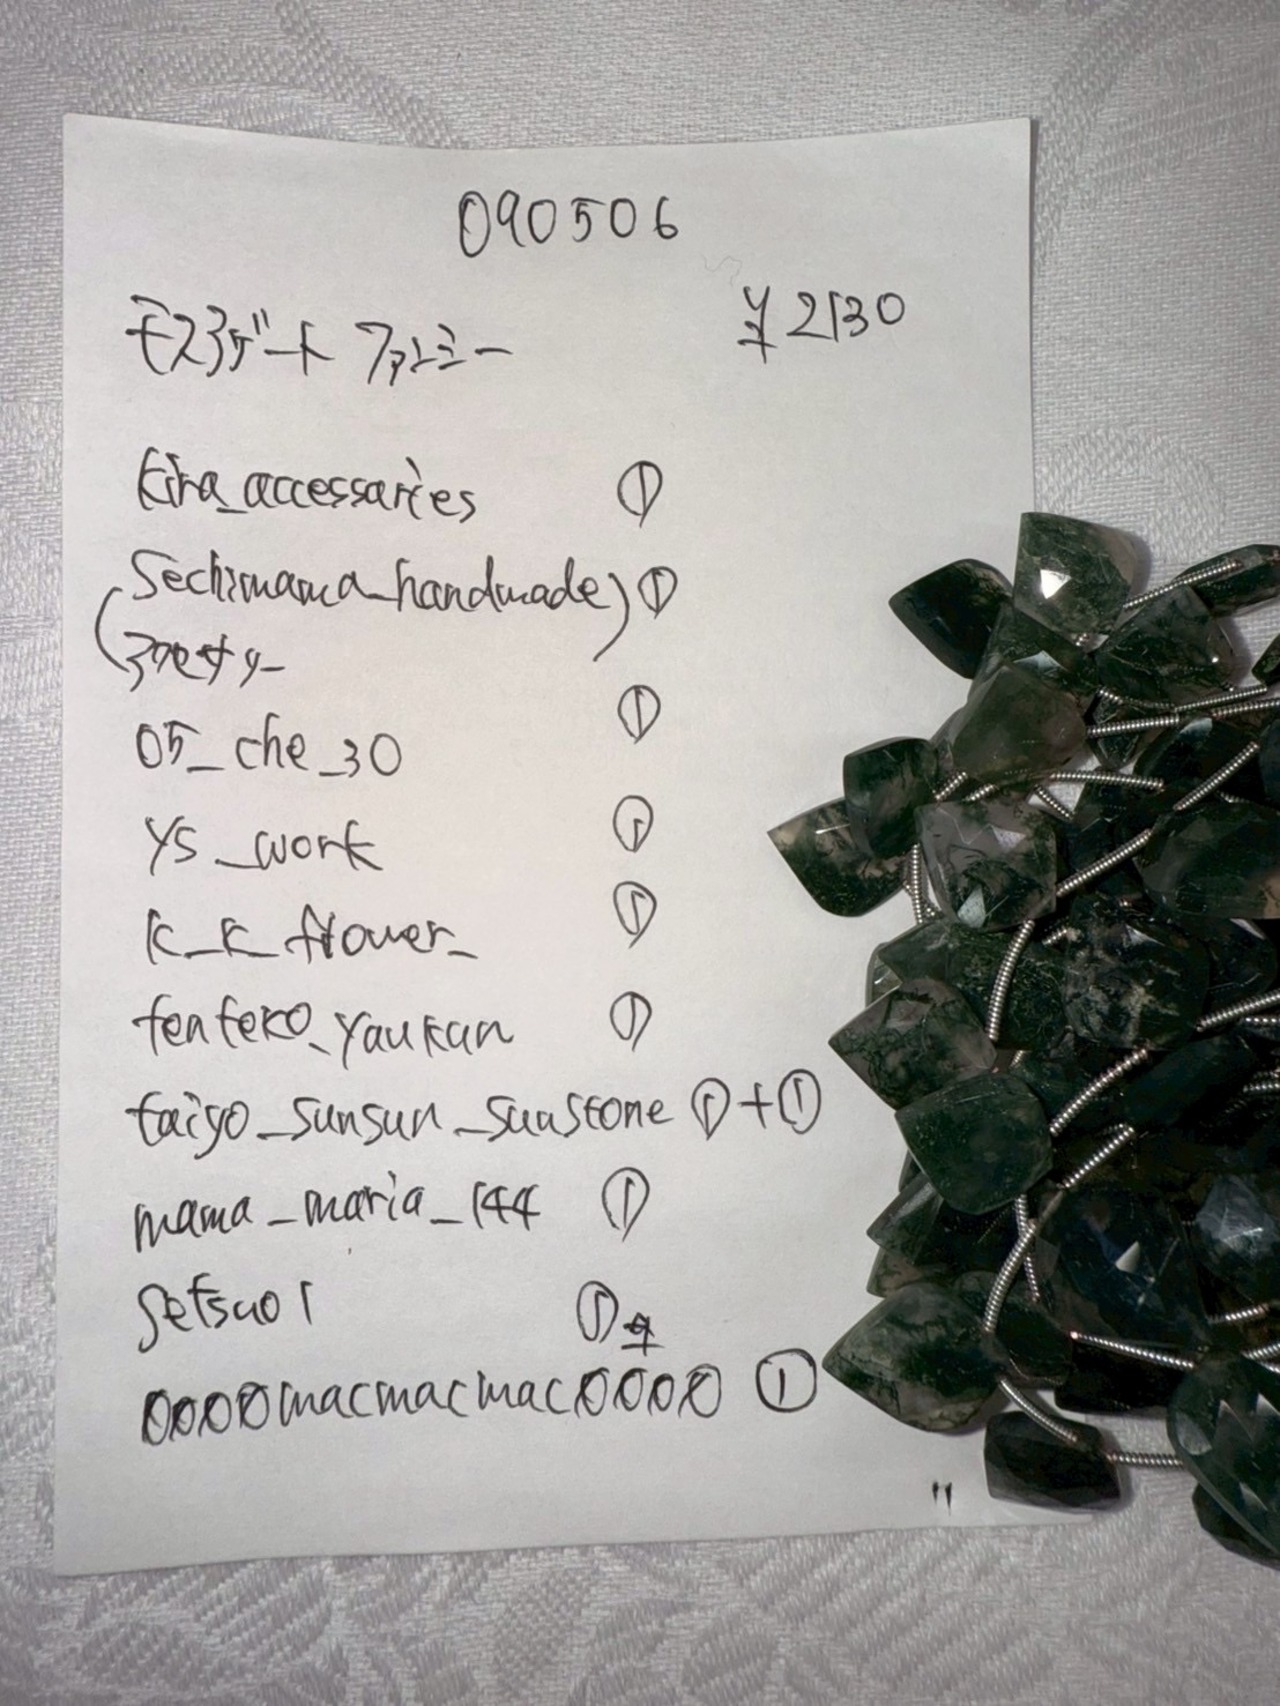 090506
モスアゲート ファンシー ¥2130
kira_accessaries ①
(Sechimama_handmade) ①
05_che_30 ①
ys_work ①
k_k_flower_ ①
tenteko_yaukan ①
taiyo_sunsun_sunstone ①+①
mama_maria_144 ①
setsuo1 ①
0000macmacmac0000 ①
11